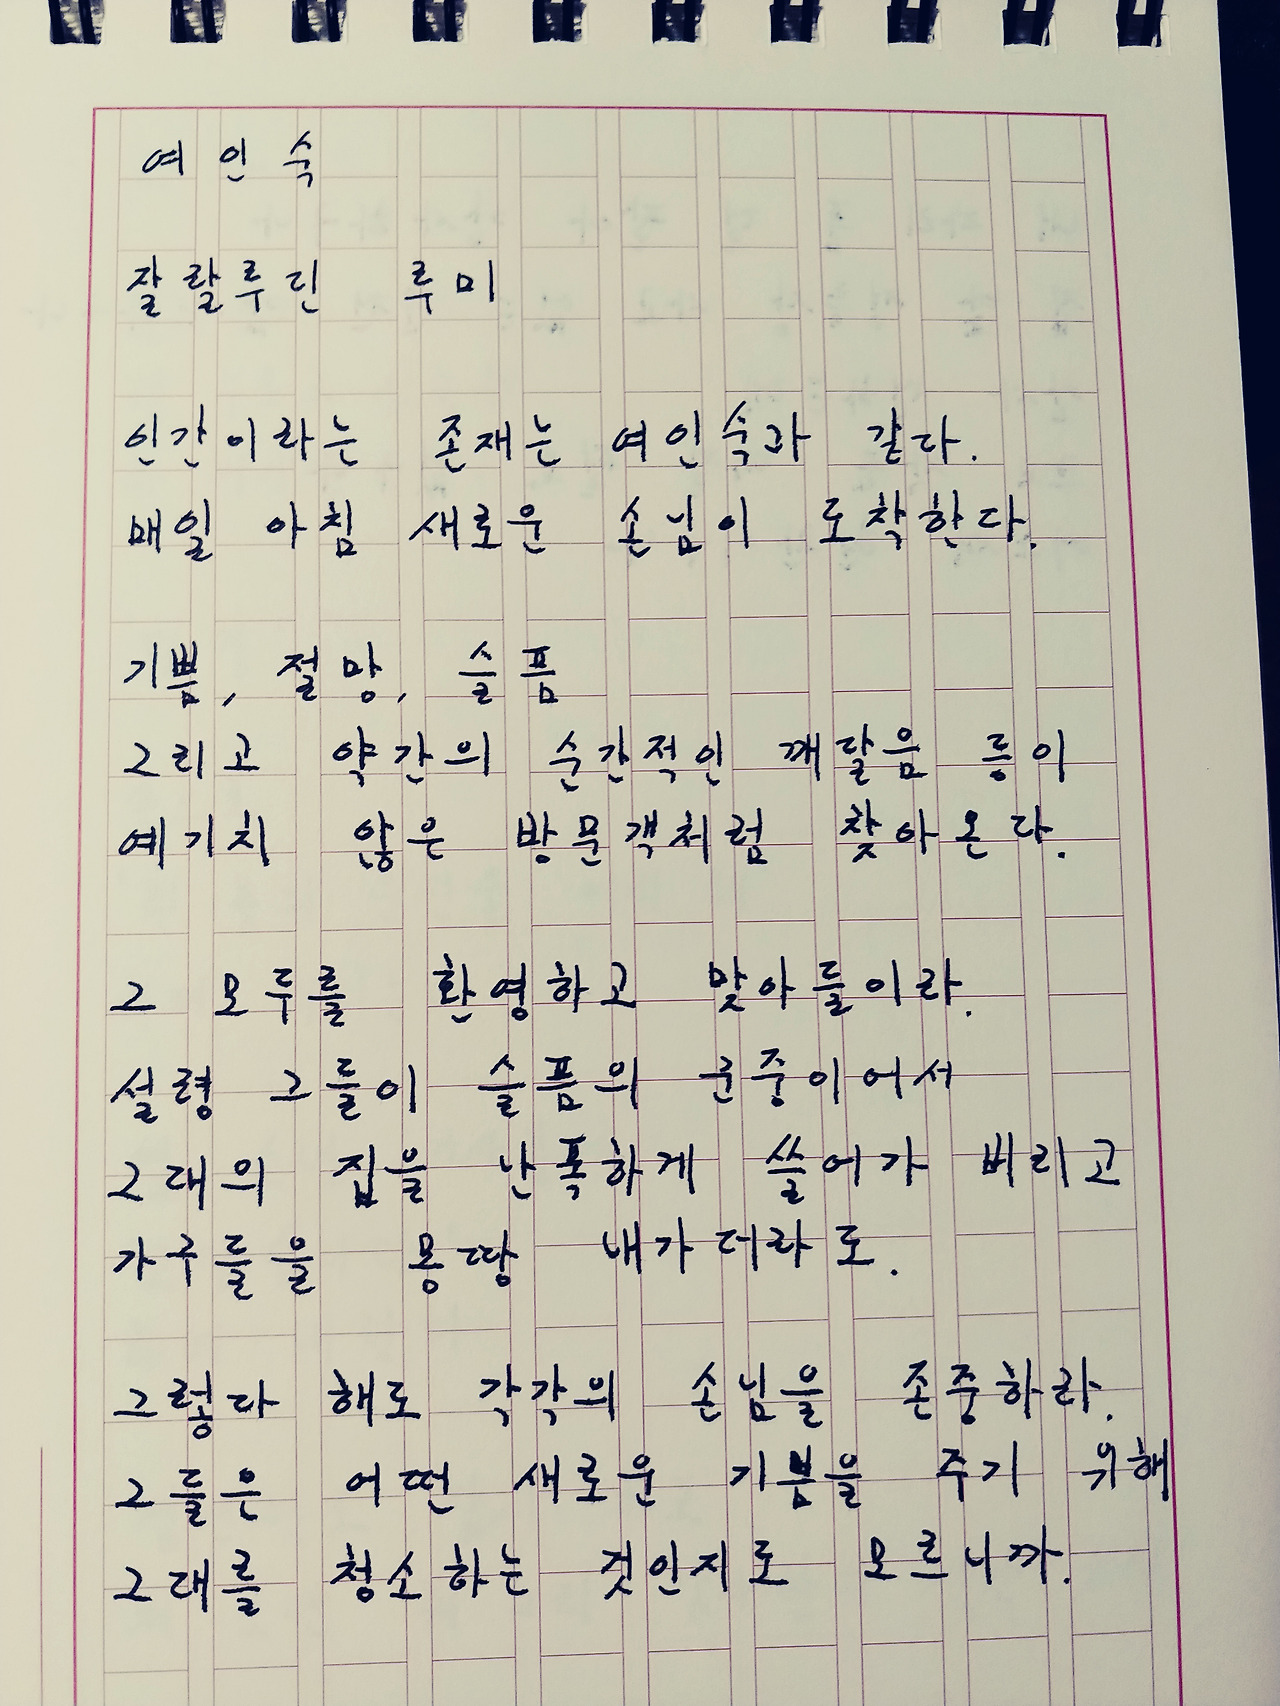 여인숙
잘랄루딘 루미
인간이라는 존재는 여인숙과 같다.
매일 아침 새로운 손님이 도착한다.
기쁨, 절망, 슬픔
그리고 약간의 순간적인 깨달음 등이
예기치 않은 방문객처럼 찾아온다.
그 모두를 환영하고 맞아들이라.
설령 그들이 슬픔의 군중이어서
그대의 집을 난폭하게 쓸어가 버리고
가구들을 몽땅 내가더라도.
그렇다 해도 각각의 손님을 존중하라.
그들은 어떤 새로운 기쁨을 주기 위해
그대를 청소하는 것인지도 모르니까.